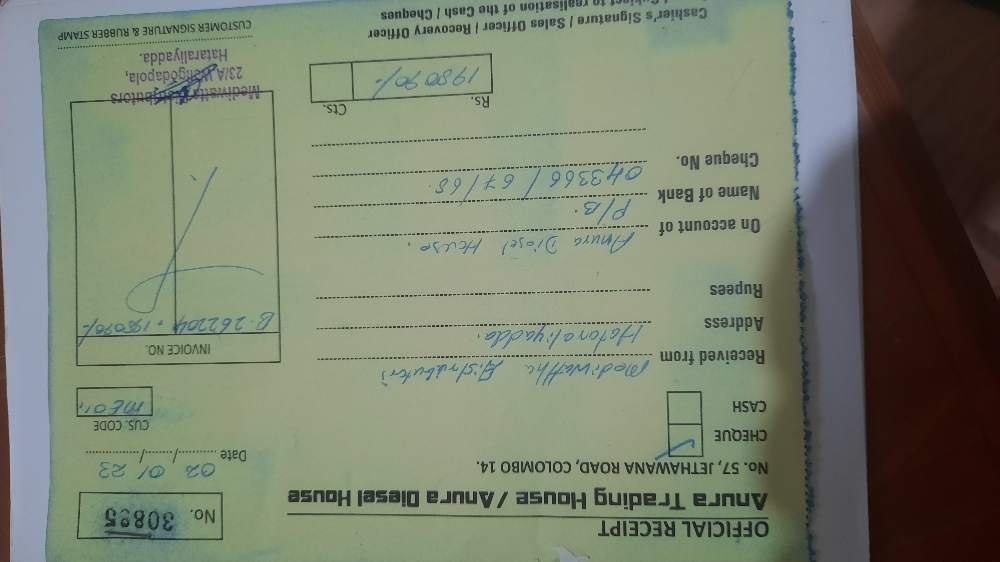 OFFICIAL RECEIPT
Anura Trading House / Anura Diesel House
No. 57, JETHAWANA ROAD, COLOMBO 14.
No. 30895
Date 02/01/23
CHEQUE ✓
CASH
CUS. CODE
Received from Mediwaththe Distributors
Address Hataraliyadda.
Rupees
On account of Anura Diesel House.
Name of Bank P/B.
Cheque No. 043366/67/68
INVOICE NO.
B-262204. 198090/-
Rs. Cts.
198090/-
Mediwatta Distributors
23/A Wangodapola,
Hataraliyadda.
Cashier's Signature / Sales Officer / Recovery Officer
CUSTOMER SIGNATURE & RUBBER STAMP
to realisation of the Cash / Cheques